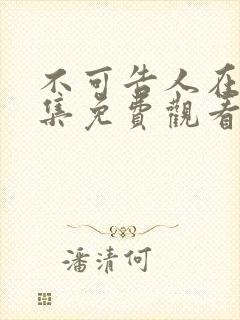 不可告人在
集免費觀看
潘清何